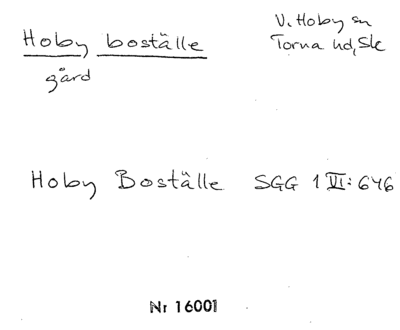 Hoby boställe
gård
V. Hoby sn
Torna hd, Sk
Hoby Boställe SGG 1 VI: 646
Nr 16001